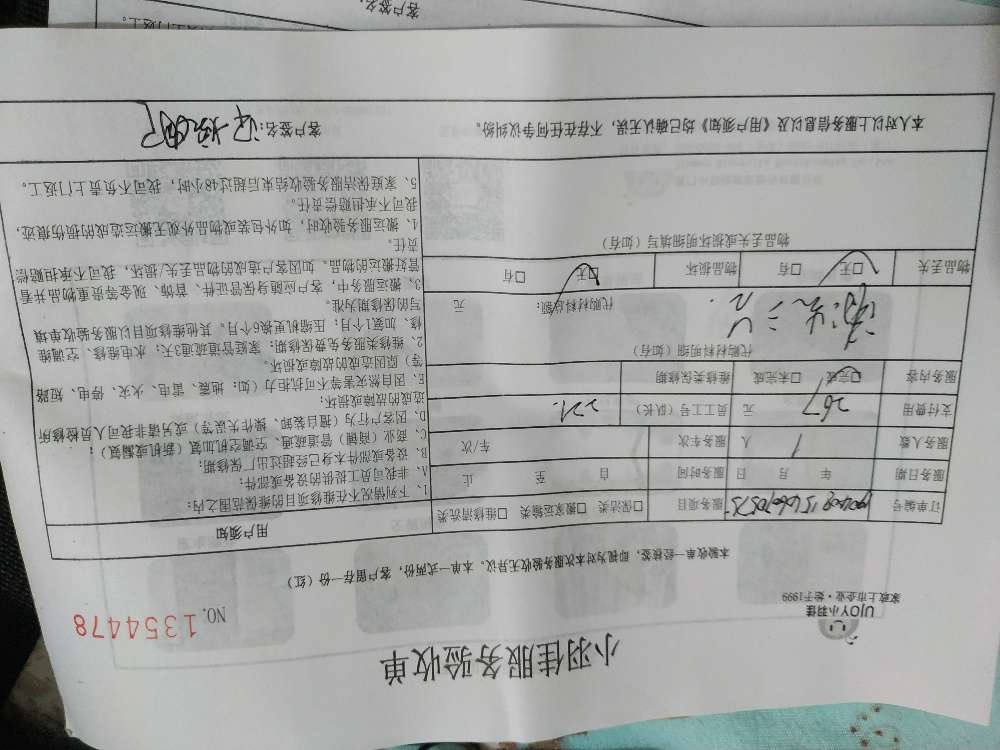 小羽佳服务验收单
UJOY小羽佳
家政上市企业·始于1999
NO. 1354478
本验收单一经核签，即视为对本次服务验收无异议。本单一式两份，客户留存一份（红）
订单编号
服务项目 □保洁类 □搬家运输类 □维修清洗类
服务日期 年 月 日 服务时间 自 至 止
服务人数 1 人 服务车次 车/次
支付费用 267 元 员工工号（队长） 221.
服务内容 □完成 □未完成 维修类保修期
代购材料明细（如有）
代购材料总额： 元
物品丢失 □无 □有 物品损坏 □无 □有
物品丢失或损坏明细填写（如有）
用户须知
1、下列情况不在维修项目的维保范围之内：
A、非我司员工提供的设备或部件；
B、设备或部件本身已经超过出厂保修期；
C、商业（商铺）管道疏通、空调空机加氟（新机或漏氟）；
D、因客户行为（擅自装卸、操作失误等）或另请非我司人员检修所
造成的故障或损坏；
E、因自然灾害等不可抗拒力（如：地震、雷电、火灾、停电、短路
等）原因造成的故障或损坏。
2、维修类服务免费保修期：家庭管道疏通3天；水电维修、空调维
修、加氟1个月；压缩机更换6个月。其他维修项目以服务验收单填
写的保修期为准。
3、搬运服务中，客户应随身保管证件、首饰、现金等贵重物品并看
管好搬运的物品。如因客户造成的物品丢失/损坏，我司不承担赔偿
责任。
4、搬运服务验收时，如外包装或物品外观无搬运造成的损伤痕迹，
我司不承担赔偿责任。
5、家庭保洁服务验收结束后超过48小时，我司不负责上门返工。
本人对以上服务信息以及《用户须知》均已确认无误，不存在任何争议纠纷。
客户签名：
客户签名：